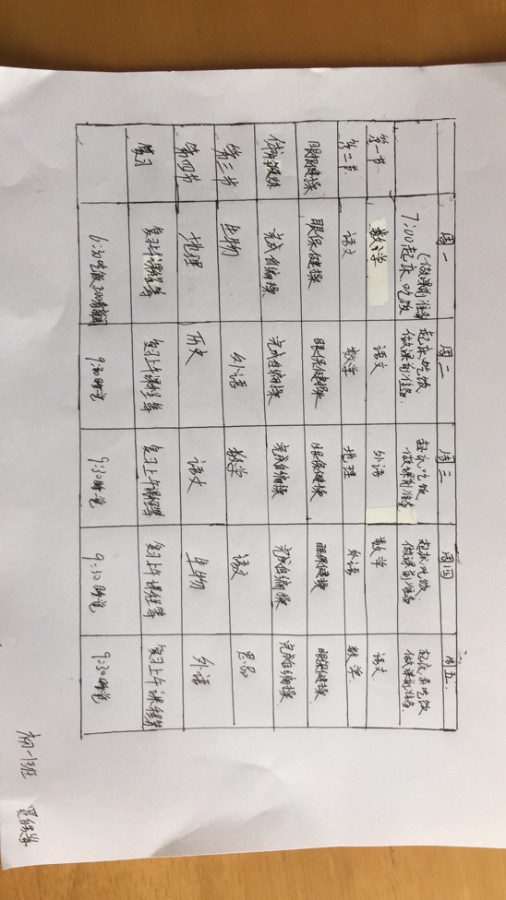 周一 周二 周三 周四 周五
7:00起床吃饭 起床吃饭 起床吃饭 起床吃饭 起床吃饭
(做课前准备 做课前准备. 做课前准备 做课前准备 做课前准备.
第一节 数学 语文 外语 数学 语文
第二节 语文 数学 地理 外语 数学
眼保健操 眼保健操 眼保健操 眼保健操 眼保健操 眼保健操
体育锻炼 完成自编操 完成自编操 完成自编操 完成自编操 完成自编操
第三节 生物 外语 数学 语文 思品
第四节 地理 历史 语文 生物 外语
复习 复习上午课程等 复习上午课程等 复习上午课程等 复习上午课程等 复习上午课程等
6:30吃饭 9:30睡觉 9:30睡觉 9:30睡觉 9:30睡觉
初一1班